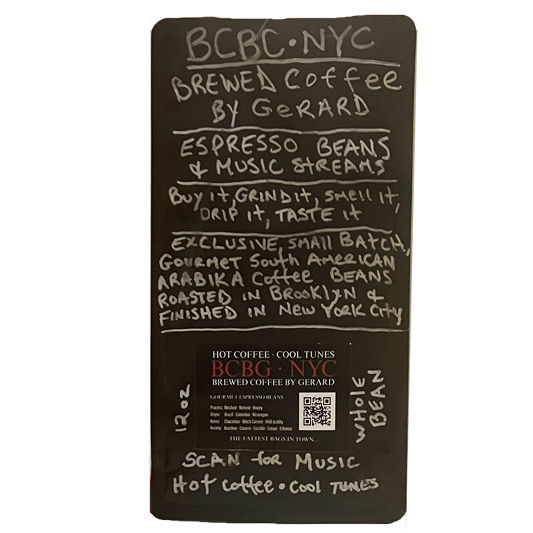 BCBC·NYC
BREWED Coffee
BY GeRARD
ESPRESSO BEANS
& MUSIC STREAMS
Buy it, GRIND it, smell it,
DRIP it, TASTE it
EXCLUSIVE, SMALL BATCH,
GOURMET South AMERICAN
ARABIKA Coffee BEANS
ROASTED IN BROOKLYN &
FINISHED IN NEW YORK City
HOT COFFEE · COOL TUNES
BCBG · NYC
BREWED COFFEE BY GERARD
GOURMET ESPRESSO BEANS
Process: Washed · Natural · Honey
Origin: Brazil · Colombia · Nicaragua
Notes: Chocolate · Black Currant · Mild Acidity
THE FATTEST BAGS IN TOWN...
12 oz
WHOLE
BEAN
SCAN for MUSIC
Hot coffee • COOL TUNES